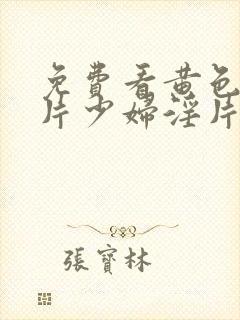 免費看黄色
片少婦淫片
張寶林